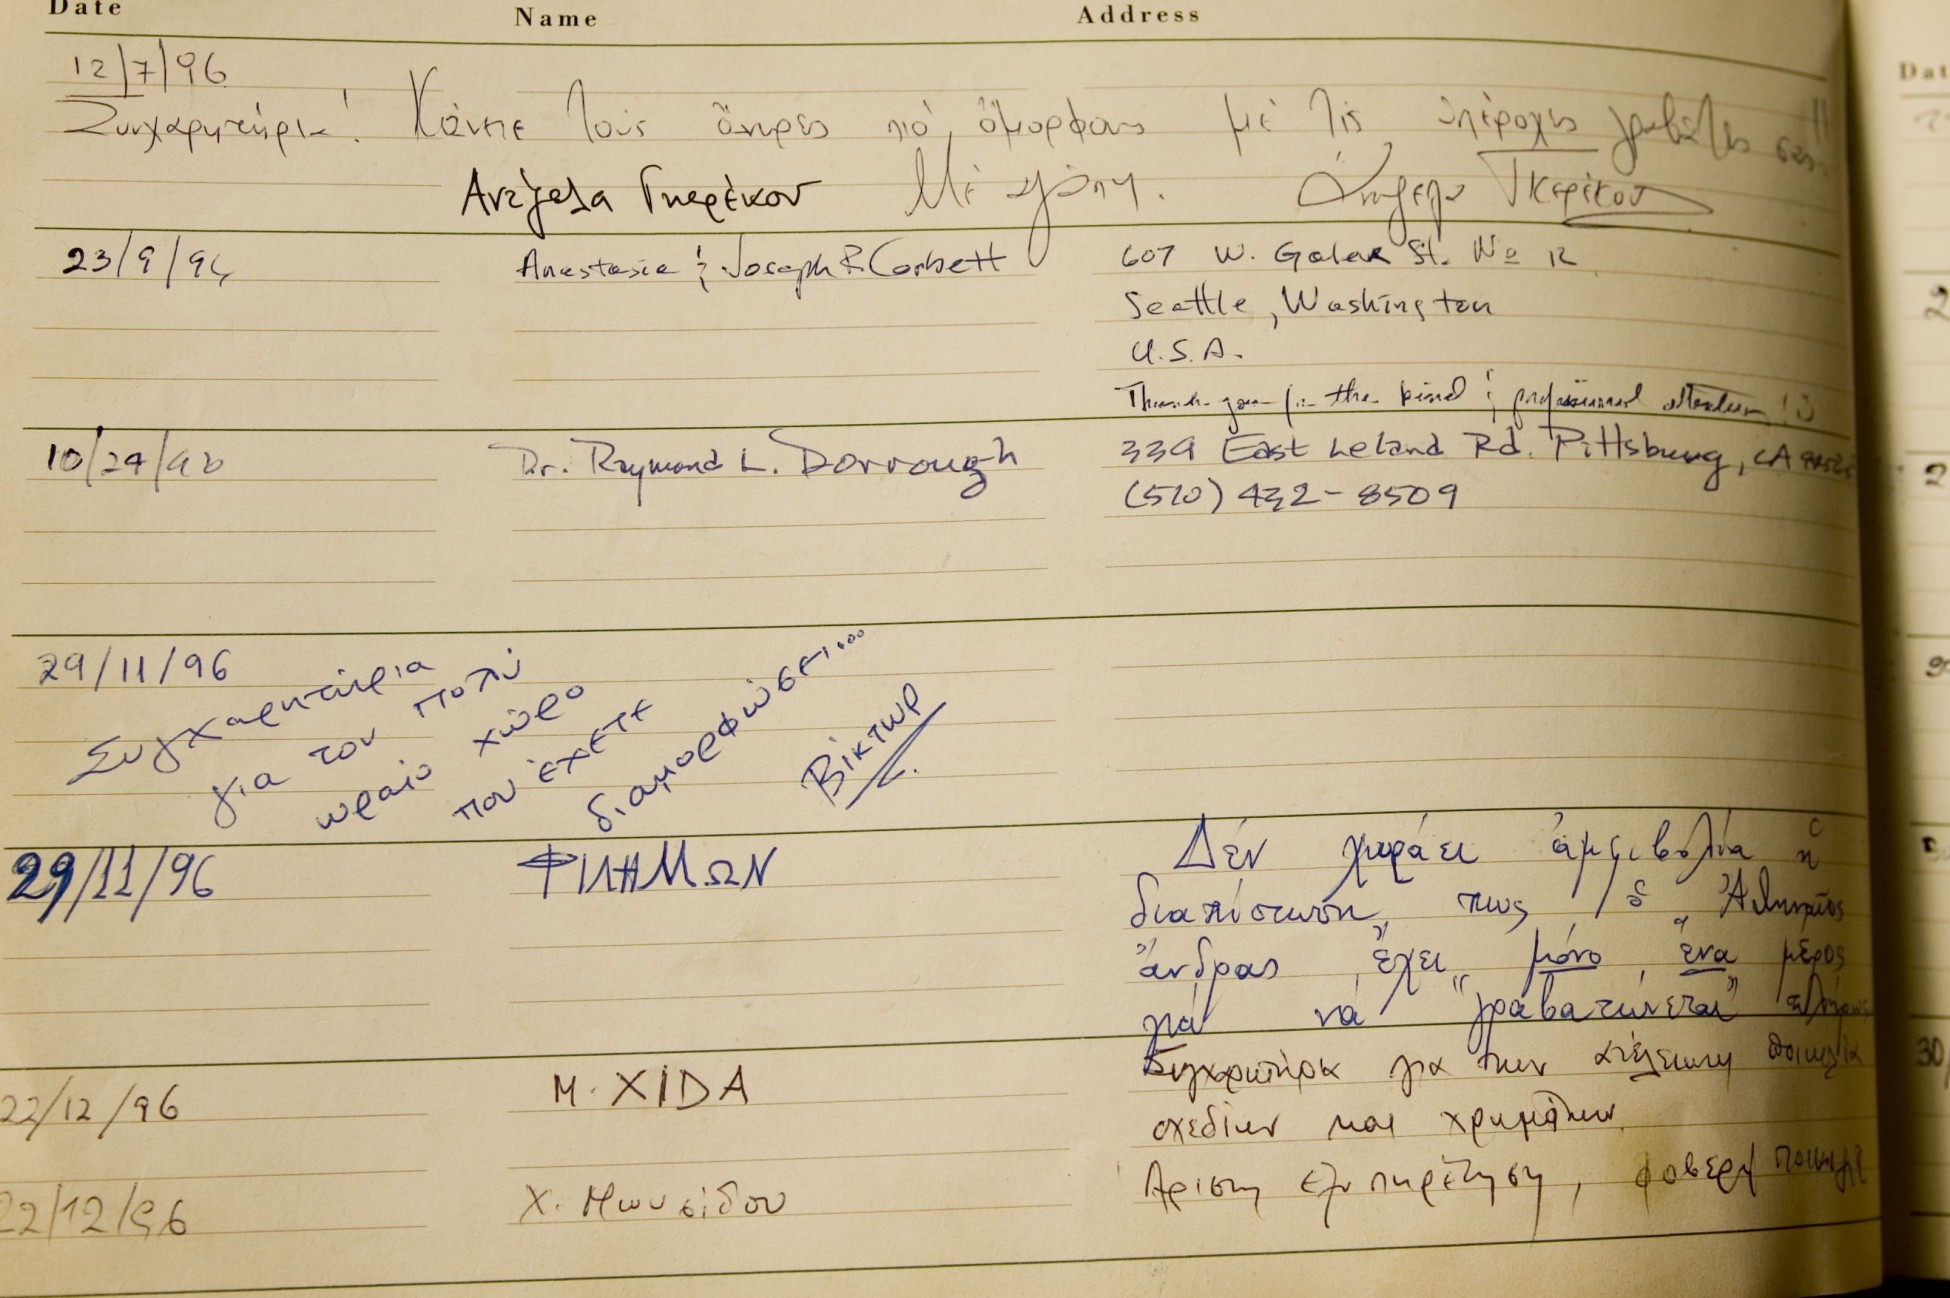 Date Name Address
12/7/96
Συγχαρητήρια! Κάνετε τούς ἄνδρες πιό ὄμορφους μέ τίς ὑπέροχες γραβάτες σας!!
Αντζελα Γκερέκου Μέ αγάπη. Άντζελα Γκερέκου
23/9/96 Anastasia & Joseph R. Corbett 607 W. Galer St. No 12
Seattle, Washington
U.S.A.
Thank you for the kind & professional attention!
10/29/96 Dr. Raymond L. Dorrough 339 East Leland Rd. Pittsburg, CA
(510) 432-8509
29/11/96
Συγχαρητήρια
για τον πολύ
ωραίο χώρο
που έχετε
διαμορφώσει...
Βίκτωρ
29/11/96 ΦΙΛΗΜΩΝ Δέν χωράει ἀμφιβολία ἡ
διαπίστωση, πως ὁ Ἀθηναῖος
ἄνδρας ἔχει μόνο ἕνα μέρος
γιά νά "γραβατώνεται"
22/12/96 Μ. ΧΙDΑ Συγχαρητήρια για την ατέλειωτη ποικιλία
σχεδίων και χρωμάτων.
22/12/96 Χ. Μωυσίδου Αριστη εξυπηρέτηση, φοβερή ποικιλία
Dat
30/